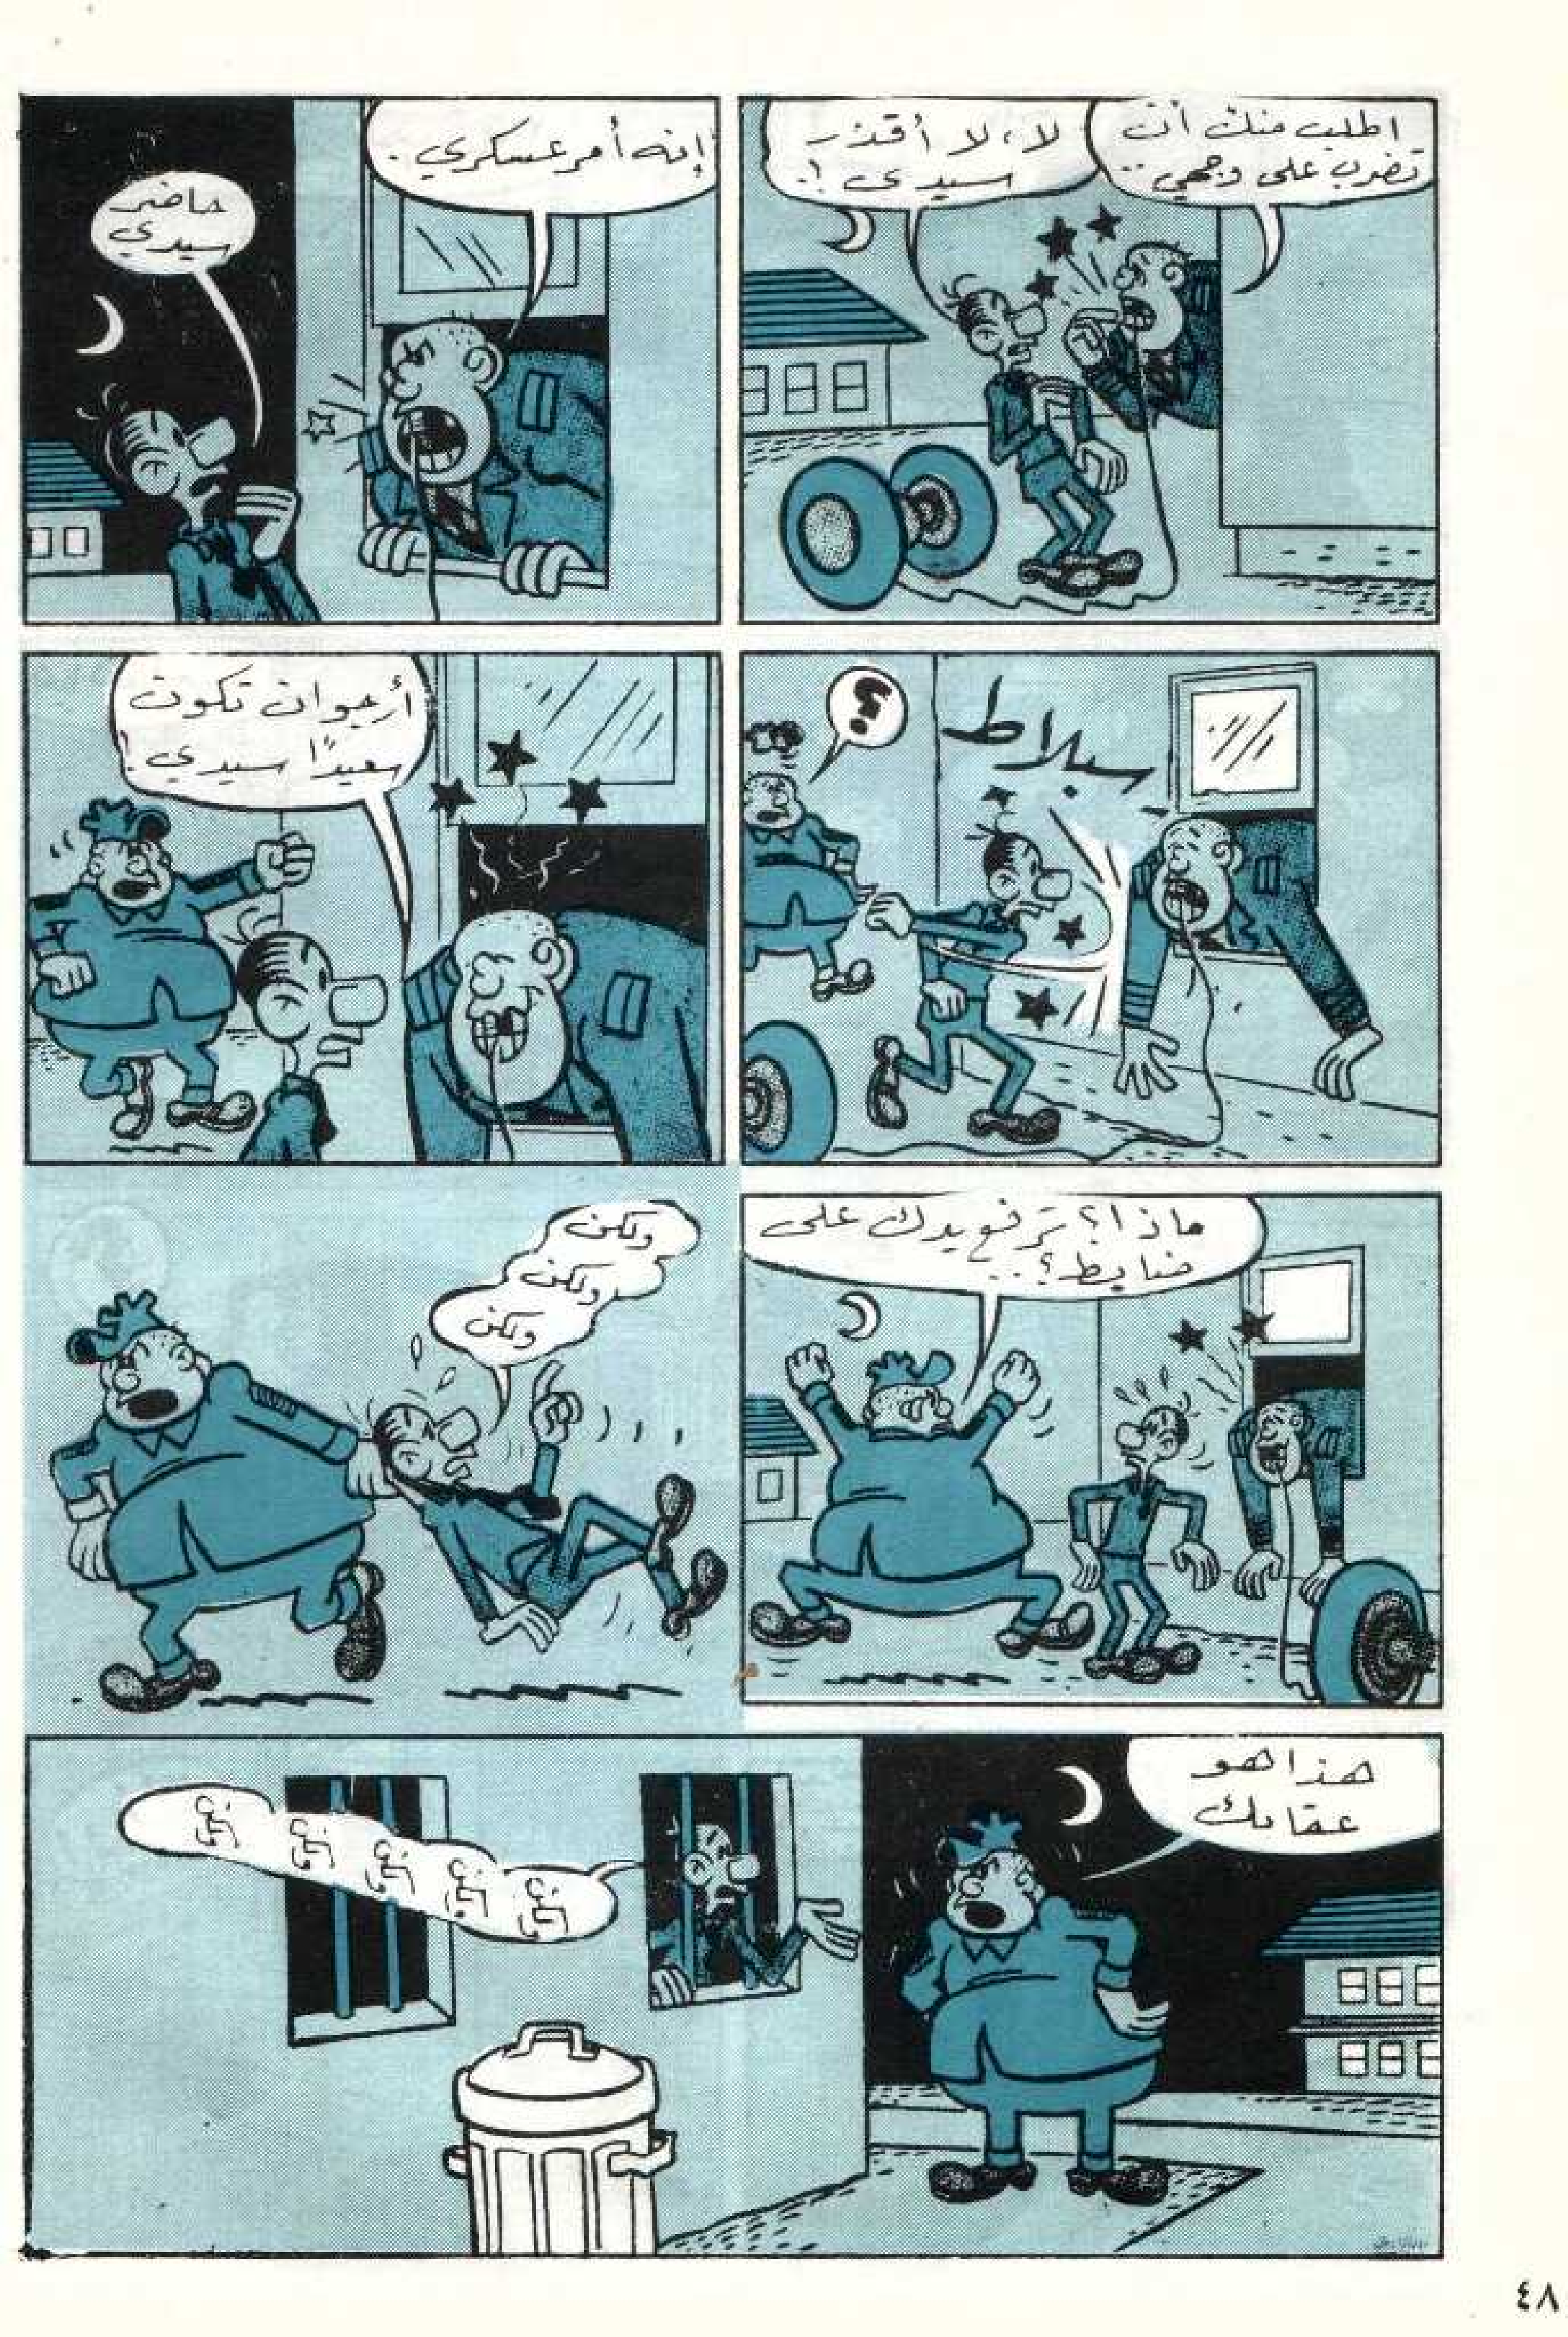 اطلب منك أن
تضرب على وجهي..
لا، لا أقدر
سيدي!.
إنه أمر عسكري.
حاضر
سيدي
سبلاط
؟!
أرجو ان تكون
سعيدًا سيدي!
ماذا؟ ترفع يدك على
ضابط؟..
ولكن
ولكن
ولكن
هذا هو
عقابك
ولكن
ولكن
ولكن
ولكن
ولكن
٤٨